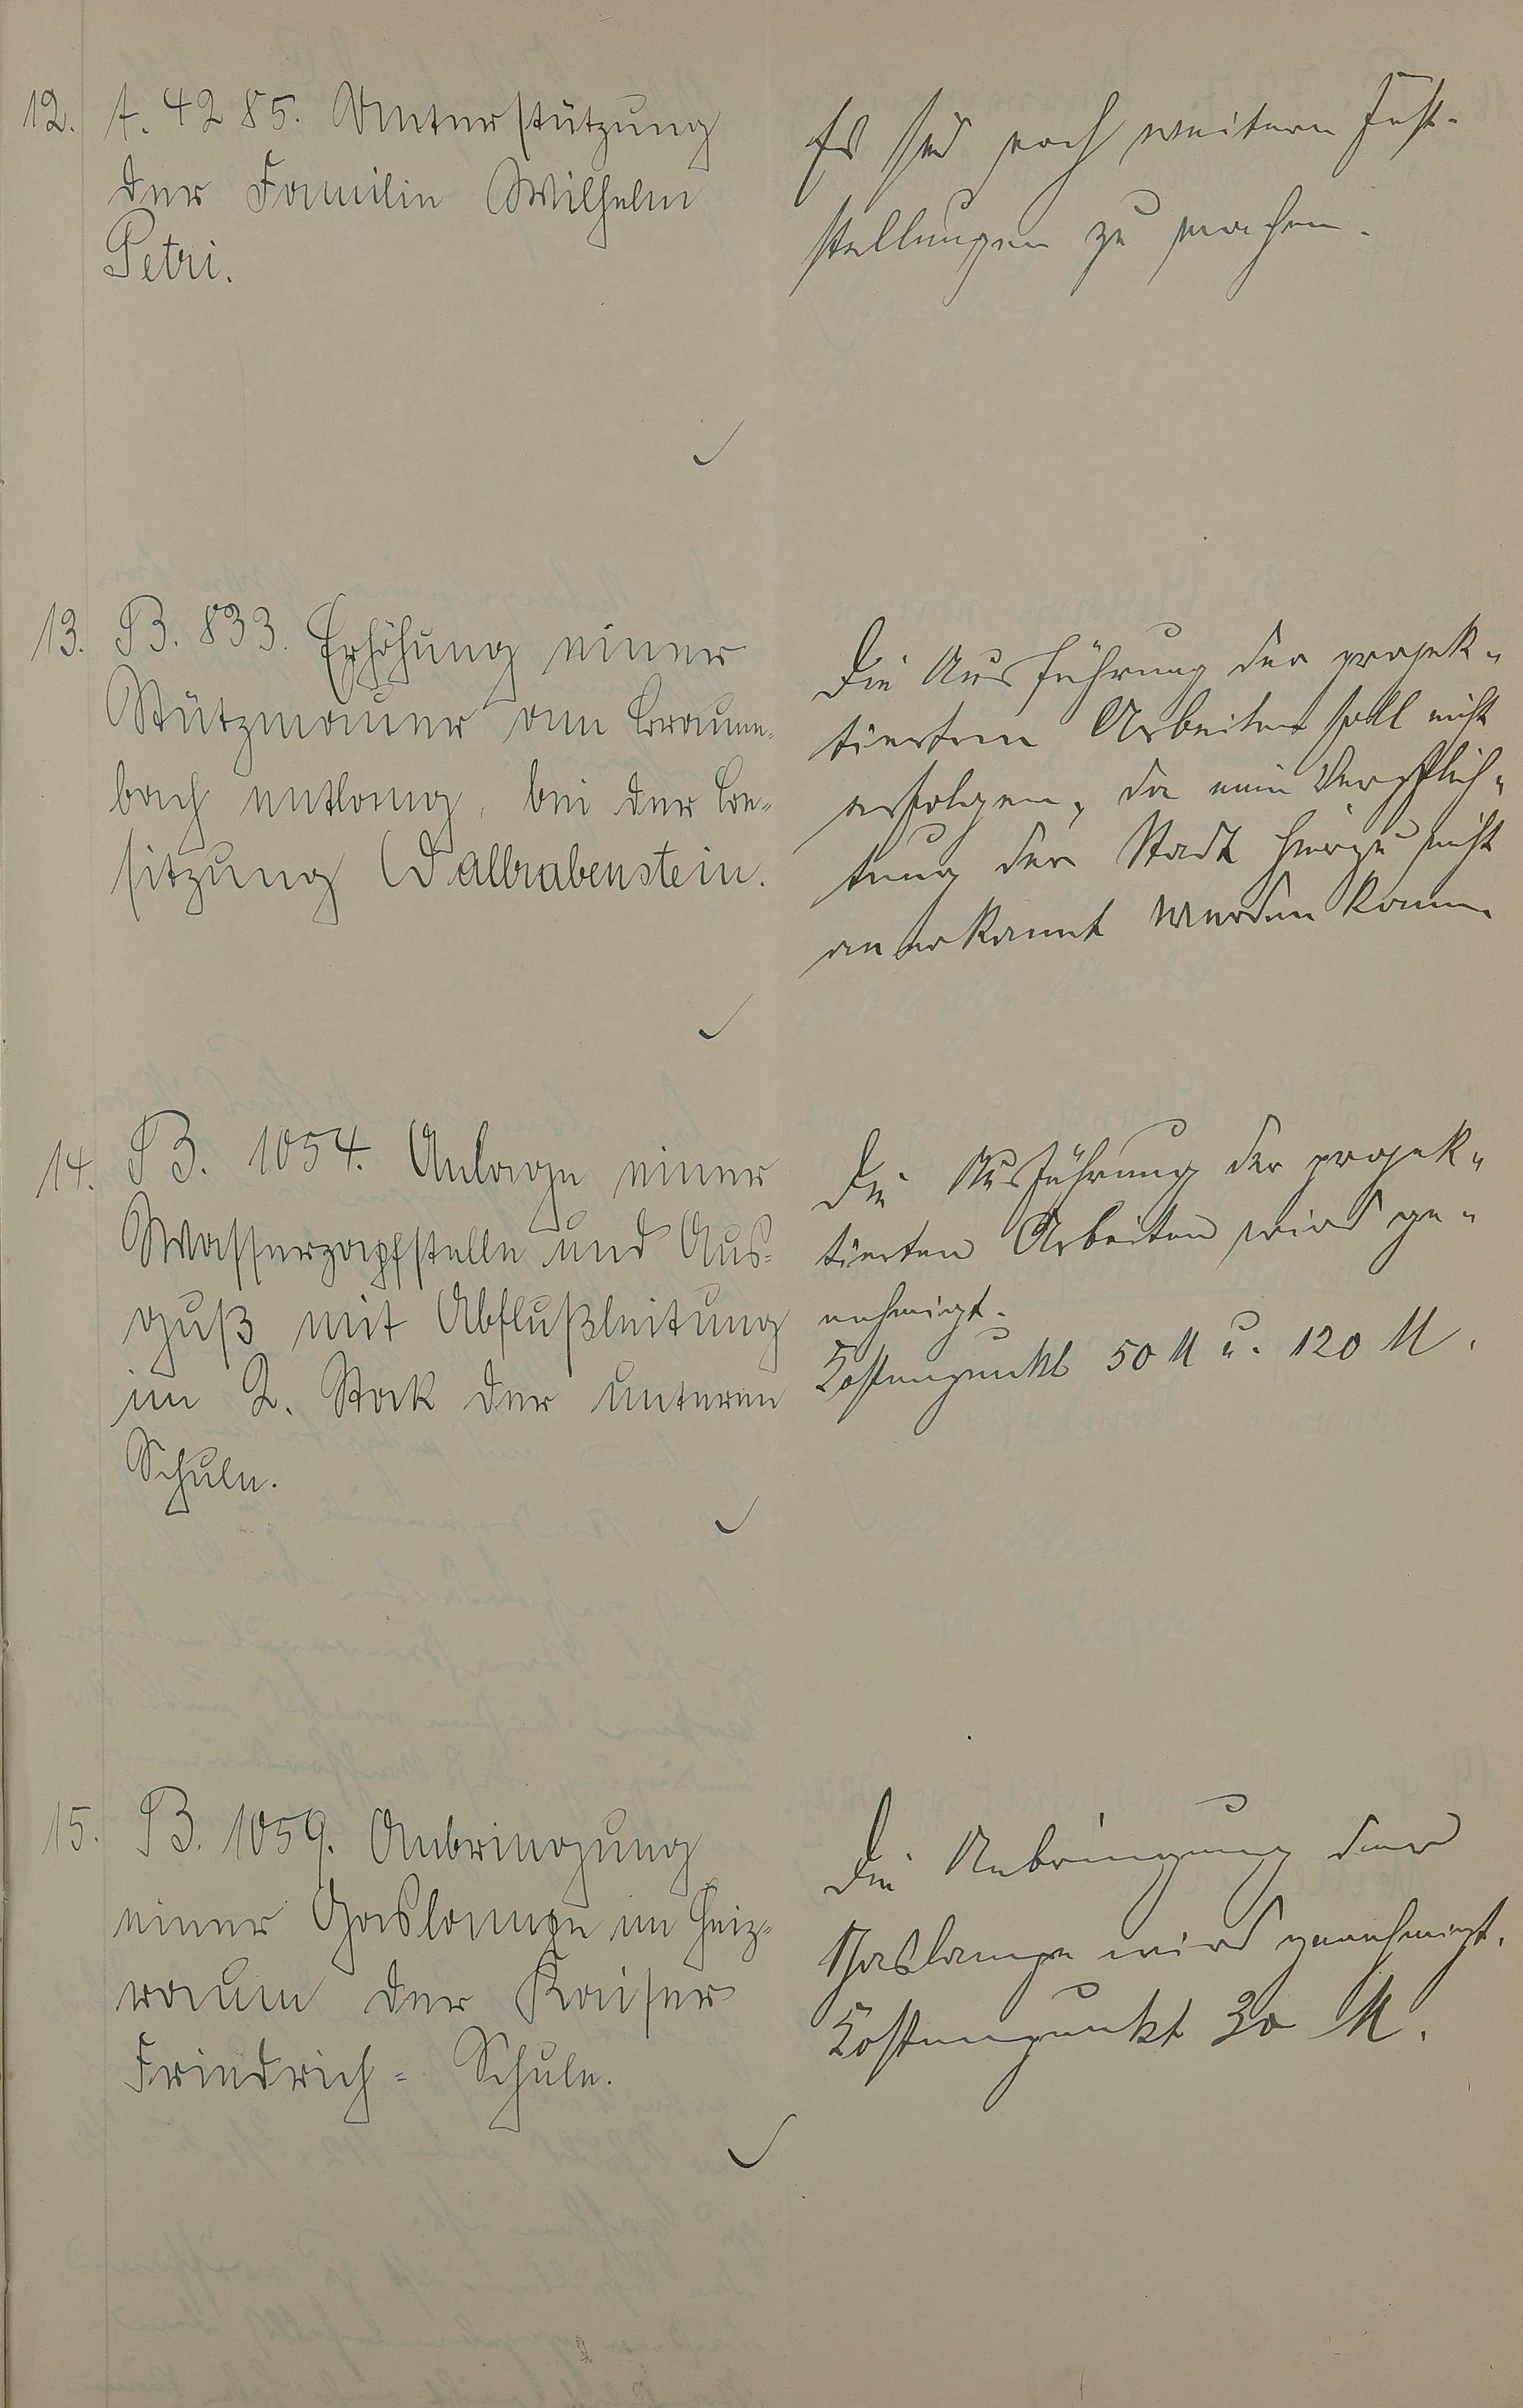 12. A. 4285. Unterstützung
der Familie Wilhelm
Petri.
Es sind noch weitere Fest-
stellungen zu machen.
13. B. 833. Erhöhung einer
Stützmauer am Braum-
bach entlang, bei der Be-
sitzung Wallrabenstein.
Die Ausführung der projek-
tierten Arbeiten soll nicht
erfolgen, da eine Verpflich-
tung der Stadt hierzu nicht
anerkannt werden kann.
14. B. 1054. Anlage einer
Wasserzapfstelle und Aus-
guß mit Abflußleitung
im 2. Stock der unteren
Schule.
Die Ausführung der projek-
tierten Arbeiten wird ge-
nehmigt.
Kostenpunkt 50 M u. 120 M.
15. B. 1059. Anbringung
einer Gaslampe im Heiz-
raum der Kaiser
Friedrich-Schule.
Die Anbringung der
Gaslampe wird genehmigt.
Kostenpunkt 30 M.